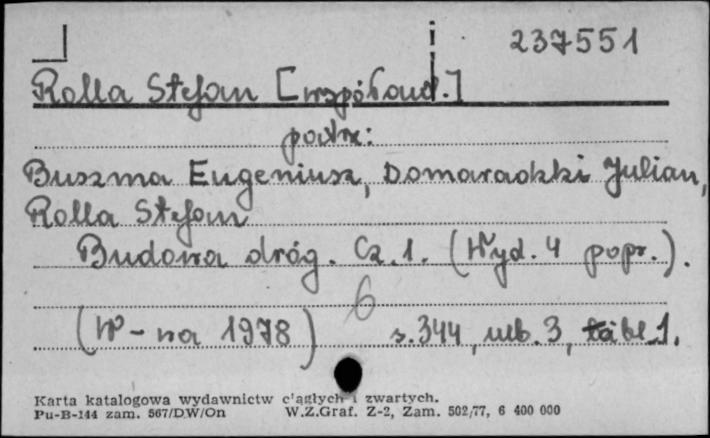 237551
Rolla Stefan [współaut.]
patrz:
Buszma Eugeniusz, Domaradzki Julian,
Rolla Stefan
Budowa dróg. Cz. 1. (Wyd. 4 popr.).
6
(W-wa 1978) s. 344, nlb. 3, tabl. 1.
Karta katalogowa wydawnictw ciągłych i zwartych.
Pu-B-144 zam. 567/DW/On W.Z.Graf. Z-2, Zam. 502/77, 6 400 000